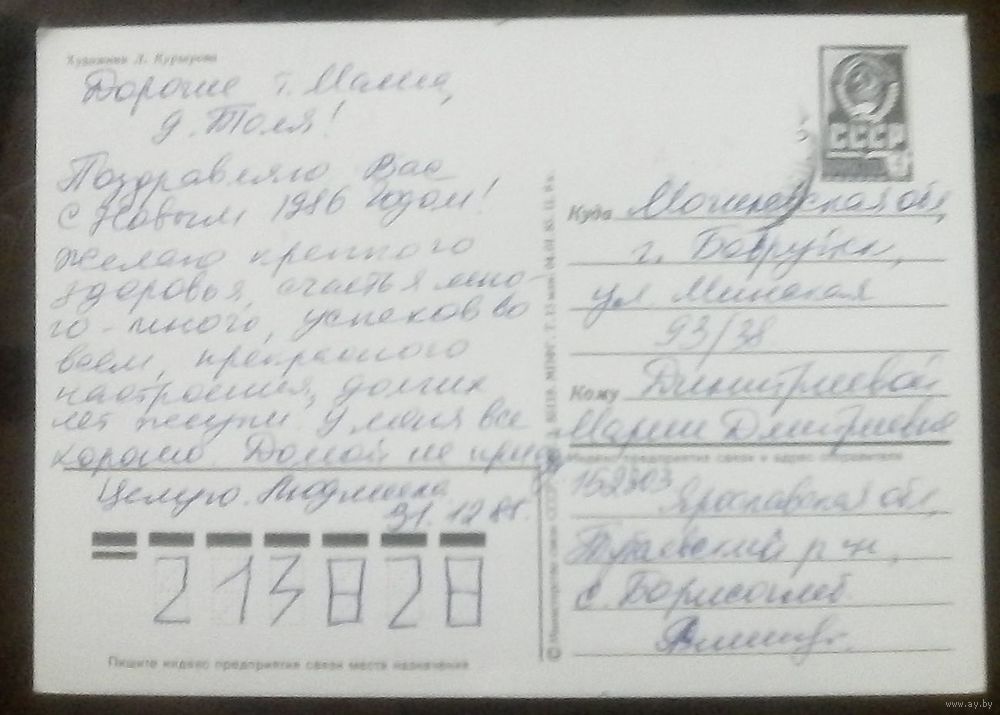 Художник Л. Курьерова
Дорогие т. Маша,
д. Толя!
Поздравляю Вас
с Новым 1986 годом!
Желаю крепного
здоровья, счастья мно-
го-много, успехов во
всем, прекрасного
настроения, долгих
лет жизни. У меня все
хорошо. Домой не приеду
Целую. Людмила
31.12.85г.
213828
Пишите индекс предприятия связи места назначения
СССР
Куда Могилевская обл,
г. Бобруйск,
ул Минская
93/38
Кому Дмитриевой
Марии Дмитриевне
Индекс предприятия связи и адрес отправителя
152303 Ярославская обл,
Тутаевский р-н,
с. Борисоглеб
www.ay.by